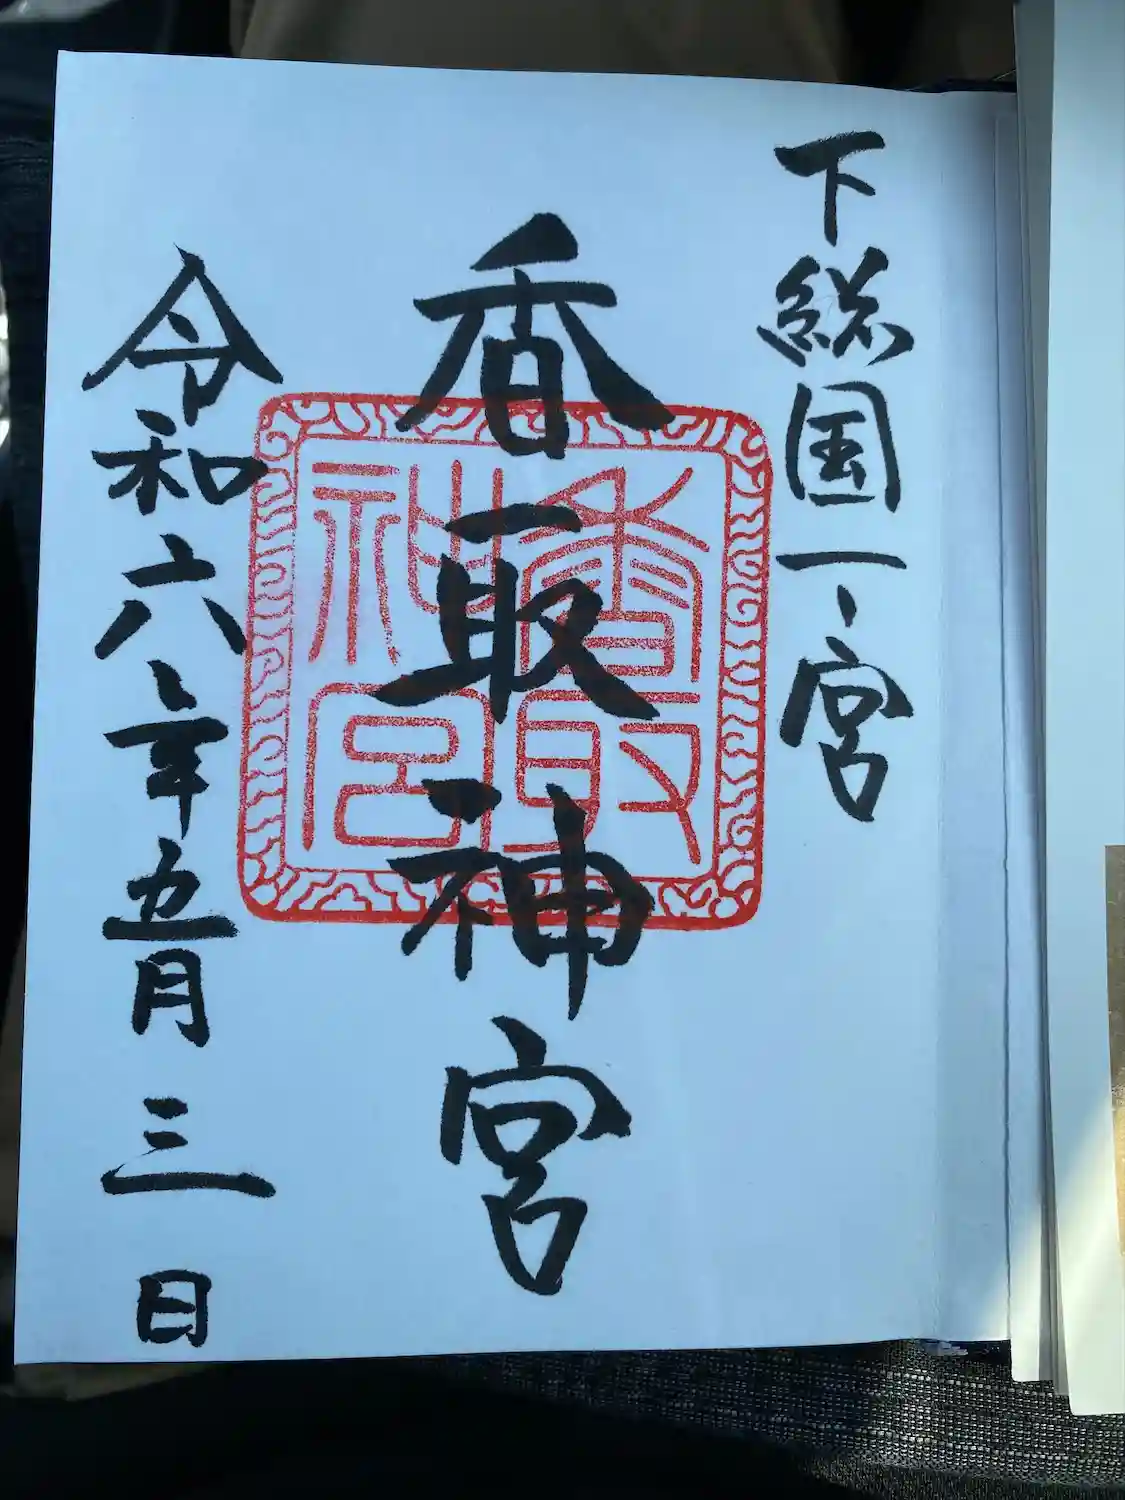 下総国一ノ宮
香取神宮
香取神宮
令和六年五月三日